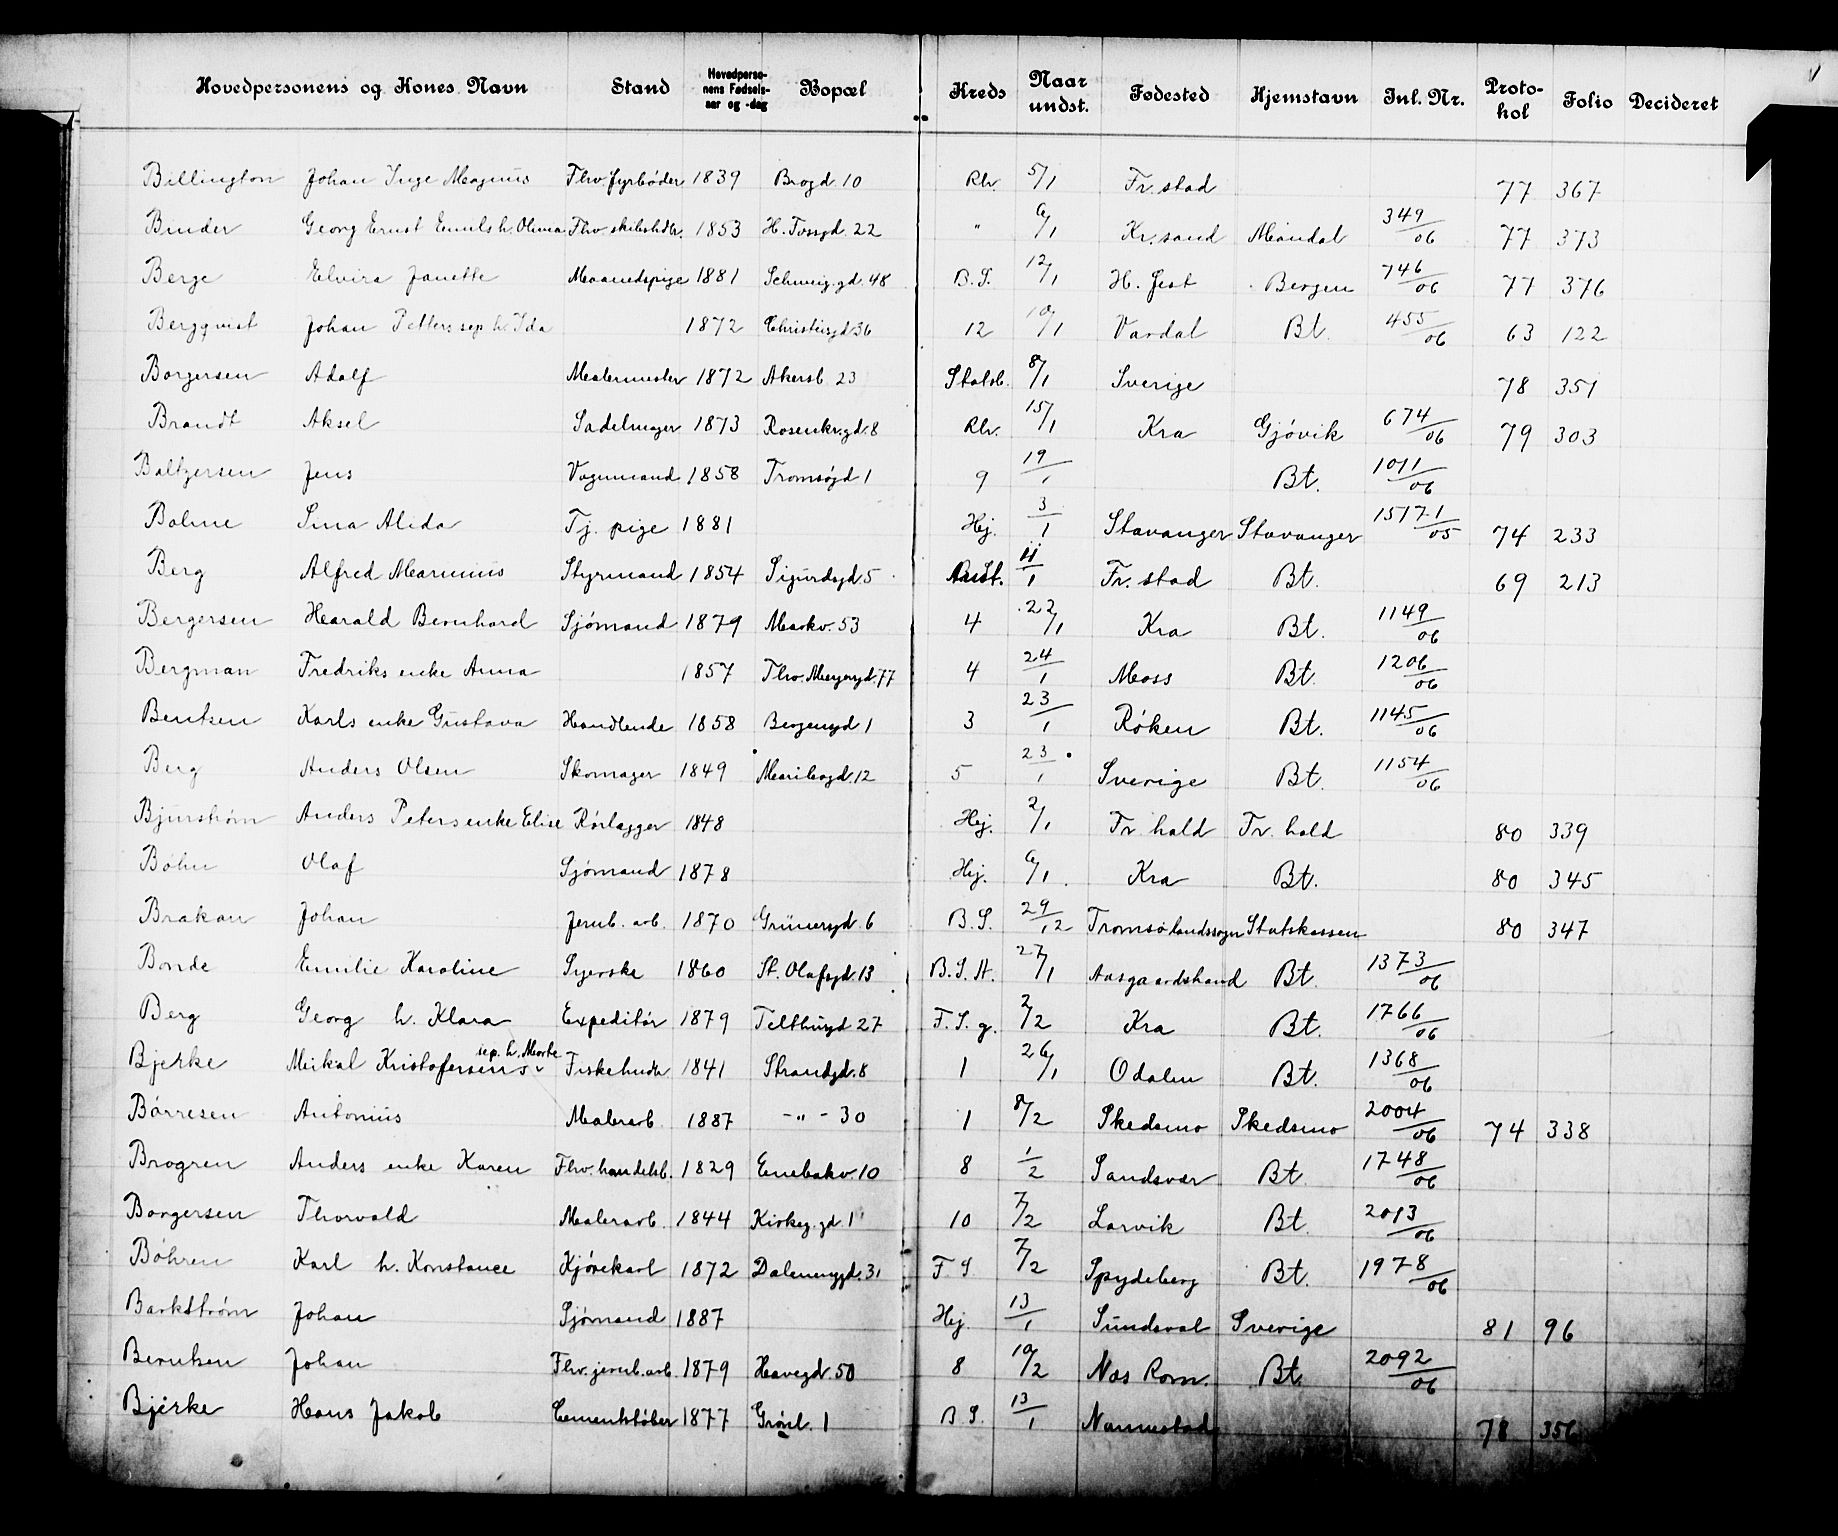 Hovedpersonens og Kones Navn Stand Hovedpersonens Fødselsaar og -dag Bopæl Kreds Naar undst. Fødested Hjemstavn Inl. Nr. Protohol Folio Decideret
Billington Johan Inge Magnus Fhv. fyrbøder 1839 Brogd. 10 Rhv. 5/1 Fr. stad 77 367
Binder Georg Ernst Emils h. Olivia Fhv. skibshdlr. 1853 H. Fossgd. 22 " 6/1 Kr. sand Mandal 349/06 77 373
Berge Elvira Janette Maanedspige 1881 Schweig. gd. 48 B. S. 12/1 H. fest Bergen 746/06 77 376
Bergqvist Johan Petters sep. h. Ida 1872 Christiesgd 36 12 10/1 Vardal Bt. 455/06 63 122
Borgersen Adolf Malermester 1872 Akersb. 23 Statsb. 8/1 Sverige 78 351
Brandt Aksel Sadelmager 1873 Rosenkr. gd. 8 Rhv. 15/1 Kra Gjøvik 674/06 79 303
Baltzersen Jens Vognmand 1858 Tromsøgd 1 9 19/1 Bt. 1011/06
Bolme Sina Alida Tj. pige 1881 Hej. 3/1 Stavanger Stavanger 15171/05 74 233
Berg Alfred Marinius Styrmand 1854 Sigurdsgd. 5 11/1 Fr. stad Bt. 69 213
Bergersen Harald Bernhard Sjømand 1879 Markv. 53 4 22/1 Kra Bt. 1149/06
Bergman Fredriks enke Anna 1857 Thv. Meyersgd. 77 4 24/1 Moss Bt. 1206/06
Bentsen Karls enke Gustava Handlende 1858 Bergensgd 1 3 23/1 Røken Bt. 1145/06
Berg Anders Olsen Skomager 1849 Maribogd. 12 5 23/1 Sverige Bt. 1154/06
Bjurstrøm Anders Peters enke Elise Rørlægger 1848 Hej. 2/1 Fr. hald Fr. hald 80 339
Bøhn Olaf Sjømand 1878 Hej. 6/1 Kra Bt. 80 345
Brakan Johan Jernb. arb. 1870 Grünersgd. 6 B. S. 29/12 Tromsø landssogn Statskassen 80 347
Bonde Emilie Karoline Syerske 1860 St. Olafsgd. 13 B. S. H. 27/1 Aasgaardstrand Bt. 1373/06
Berg Georg h. Klara Expeditør 1879 Telthusgd 27 F. S. g. 2/2 Kra Bt. 1766/06
Bjerke Mikal Kristofersens sep. h. Marte Fiskehndlr 1841 Strandgd. 8 1 26/1 Odalen Bt. 1368/06
Børresen Antonius Malerarb. 1887 - " - 30 1 8/2 Skedsmo Skedsmo 2004/06 74 338
Brogren Anders enke Karen Fhv. handelsb. 1829 Enebakv. 10 8 1/2 Sandsvær Bt. 1748/06
Borgersen Thorvald Malerarb. 1844 Kirkeg. gd. 1 10 7/2 Larvik Bt. 2013/06
Bøhren Karl h. Konstance Kjørekarl 1872 Dalenenggd. 31 F. S. 7/2 Spydeberg Bt. 1978/06
Barkstrøm Johan Sjømand 1887 Hej. 13/1 Sundsval Sverige 81 96
Berntsen Johan Fhv. jernb. arb. 1879 Havegd. 50 8 10/2 Næs Rom. Bt. 2092/06
Bjerke Hans Jakob Cementstøber 1877 Grønl. 1 B. S. 13/1 Nannestad 78 356